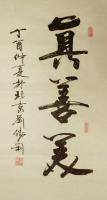 真善美
丁酉仲夏於北京劉